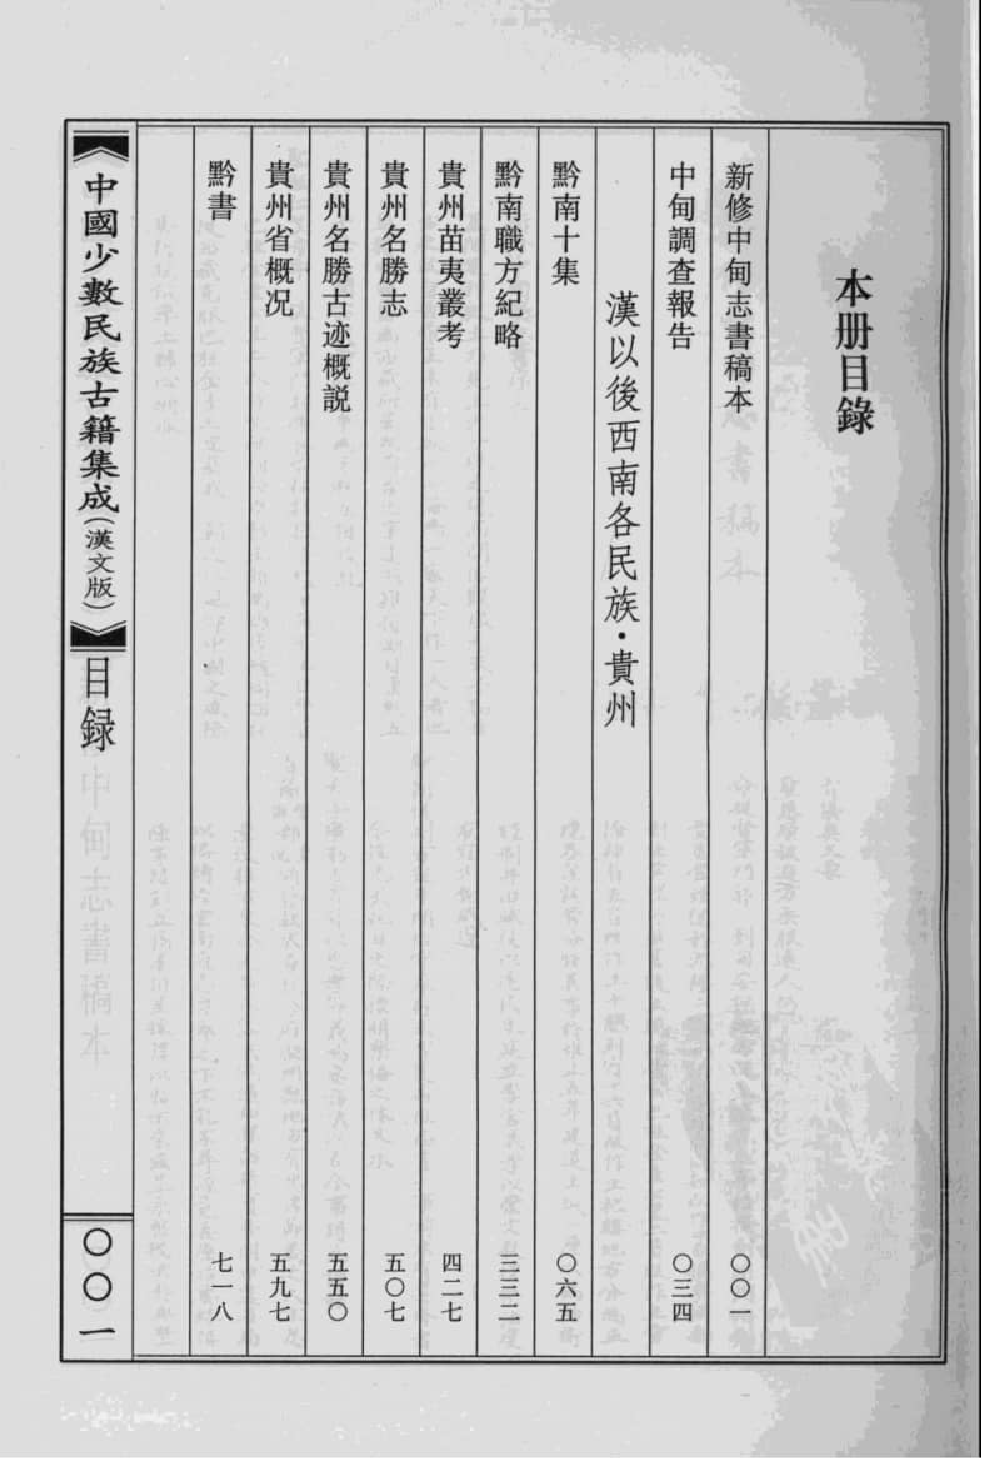 本册目錄
新修中甸志書稿本 〇〇一
中甸調查報告 〇三四
漢以後西南各民族·貴州
黔南十集 〇六五
黔南職方紀略 三三二
貴州苗夷叢考 四二七
貴州名勝志 五〇七
貴州名勝古迹概説 五五〇
貴州省概况 五九七
黔書 七一八
《中國少數民族古籍集成(漢文版)》目録
〇〇一